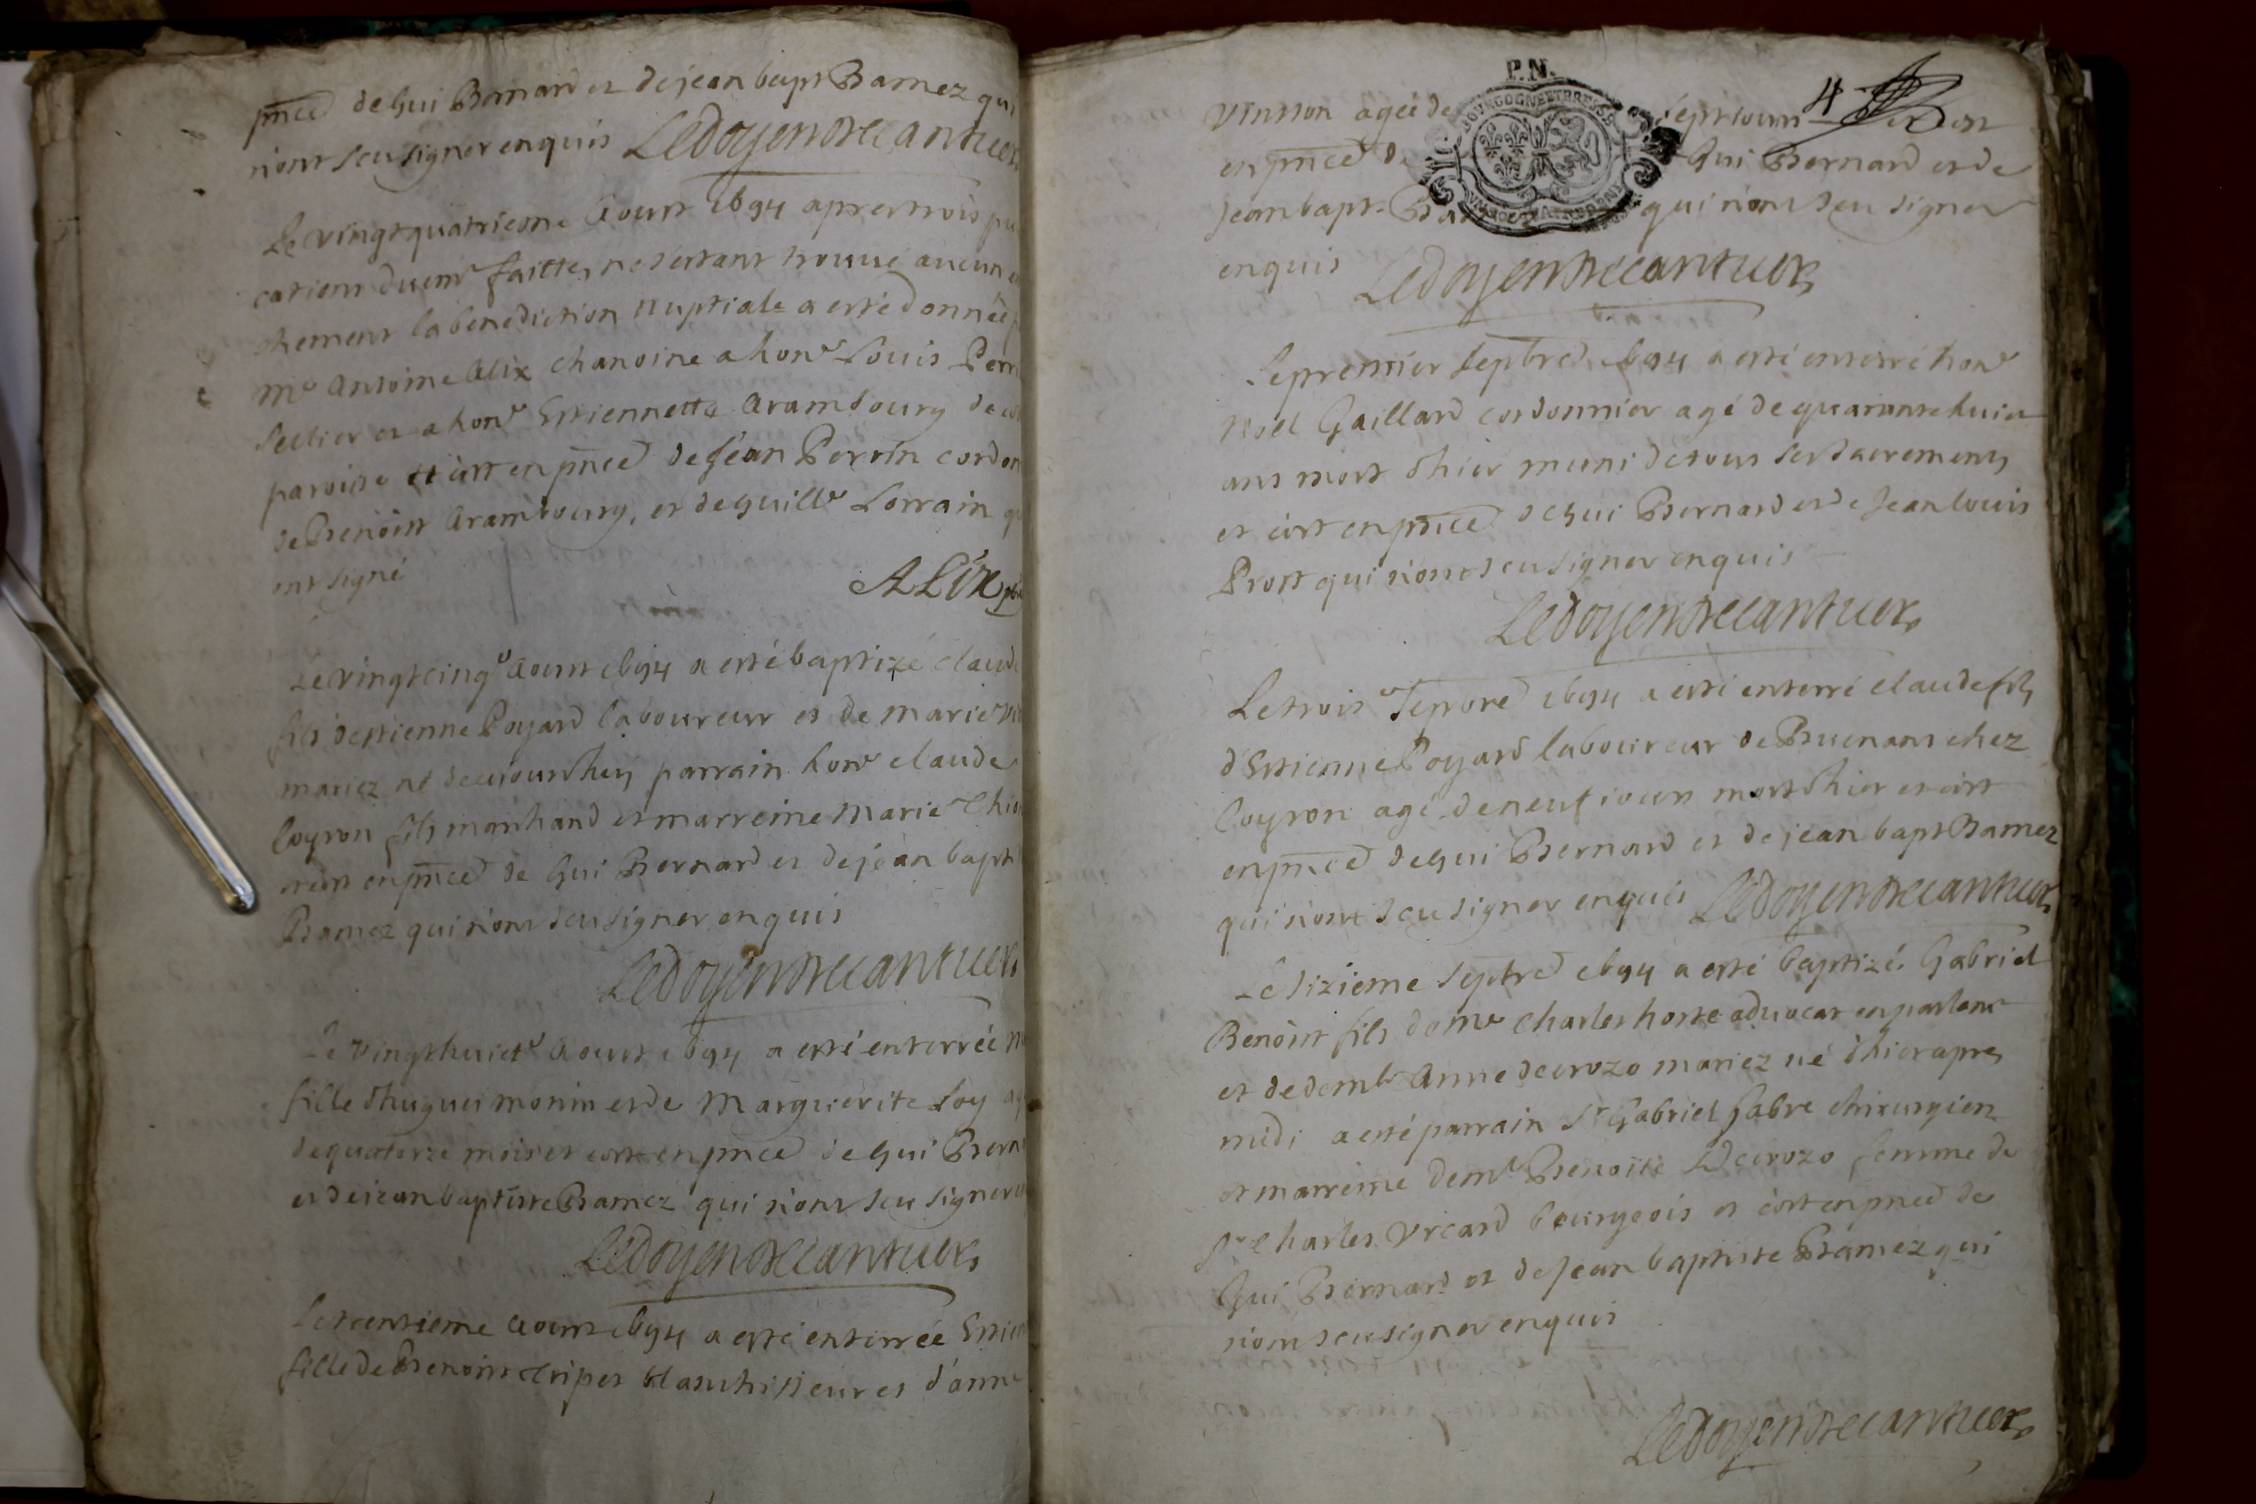 pñce de Gui Bernard et de jean bapt Bamez qui
n'ont sceu signer enquis Ledoyen
Le vingtquatrieme Aoust 1694 apres trois
cations duem.t faittes ne s'estant trouvé aucun
chement la benediction nuptiale a esté donnée
M.e Antoine Alix chanoine a hon.e Louis
Sellier et a hon.e Estiennette Arambourg de
paroisse et c'est en pñce de Jéan Perrin
de Benoist Arambourg, et de Guill.e Lorrain
ont signé
ALix
Le vingtcinq.e Aoust 1694 a esté baptizé
fils d'estienne Poyard laboureur et de marie
mariez né de ce jourdhuy parrain hon.e claude
Coyron fils marchand et marreine Marie
et c'est en pñce de Gui Bernard et de jéan bapt
Bamez qui n'ont sceu signer enquis
Ledoyen
Le vingthuict.e Aoust 1694 a esté enterrée
fille d'hugues monin et de Marguerite Loy
de quatorze mois et c'est en pñce de Gui
et de jean baptiste Bamez qui n'ont sceu signer
Ledoyen
Le trentieme Aoust 1694 a esté enterrée
fille de Benoist blanchisseur et d'anne
P.N.
Vinsson agée de sept jours 4
en pñce de Gui Bernard et de
Jean bapt. qui n'ont sceu signer
enquis Ledoyen
Le premier Septbre 1694 a esté enterré hon.e
Noël Gaillard cordonnier agé de quarante huict
ans mort d'hier muni de tous ses sacrements
et c'est en pñce de Gui Bernard et de Jean louis
Prost qui n'ont sceu signer enquis
Ledoyen
Le trois.e Septbre 1694 a esté enterré claude fils
d'Estienne Poyard laboureur de Buenans chez
Coyron agé de neuf jours mort d'hier et c'est
en pñce de Gui Bernard et de jean bapt Bamez
qui n'ont sceu signer enquis Ledoyen
Le sizieme Septbre 1694 a esté baptizé Gabriel
Benoist fils de M.e Charles hoste advocat en parlem.t
et de dem.lle Anne decrozo mariez né d'hier apres
midi a esté parrain S.r Gabriel fabre chirurgien
et marreine dem.lle Benoite Decrozo femme de
S.r Charles Vrcard bourgeois et c'est en pñce de
Gui Bernard et de Jean baptiste Bamez qui
n'ont sceu signer enquis
Ledoyen